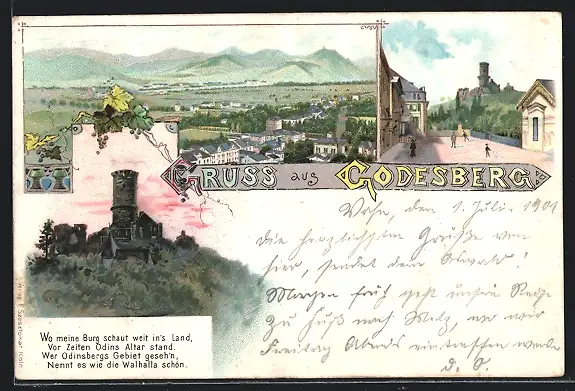 GRUSS aus GODESBERG.
Wahn, den 1. Juli 1901
Die herzlichsten Grüße von
hier, sendet dem Oswald!
Morgen früh geht unsere Reise
zu Fuß nach Metz, wo wir
Freitag Abends eintreffen werden
d. O.
Wo meine Burg schaut weit in's Land,
Vor Zeiten Odins Altar stand.
Wer Odinsbergs Gebiet geseh'n,
Nennt es wie die Walhalla schön.